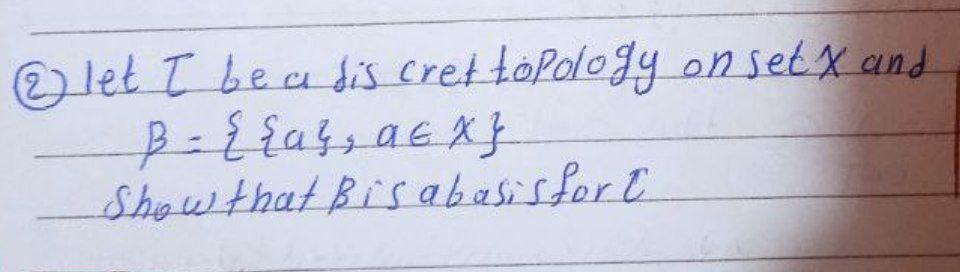 ② let τ be a dis cret topology on set X and
β = { {a}, a ∈ X }
Show that β is a basis for τ